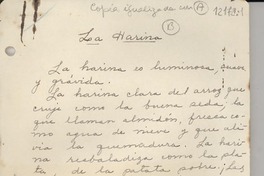 Copia
A
121921
B
La Harina
La harina es luminosa, suave
y grávida.
La harina clara del arroz que
cruje como la buena seda, la
que llaman almidón, fresca co-
mo agua de nieve y que ali-
via la quemadura. La hari-
na resbaladiza como la pla-
ta de la patata sobre; Las